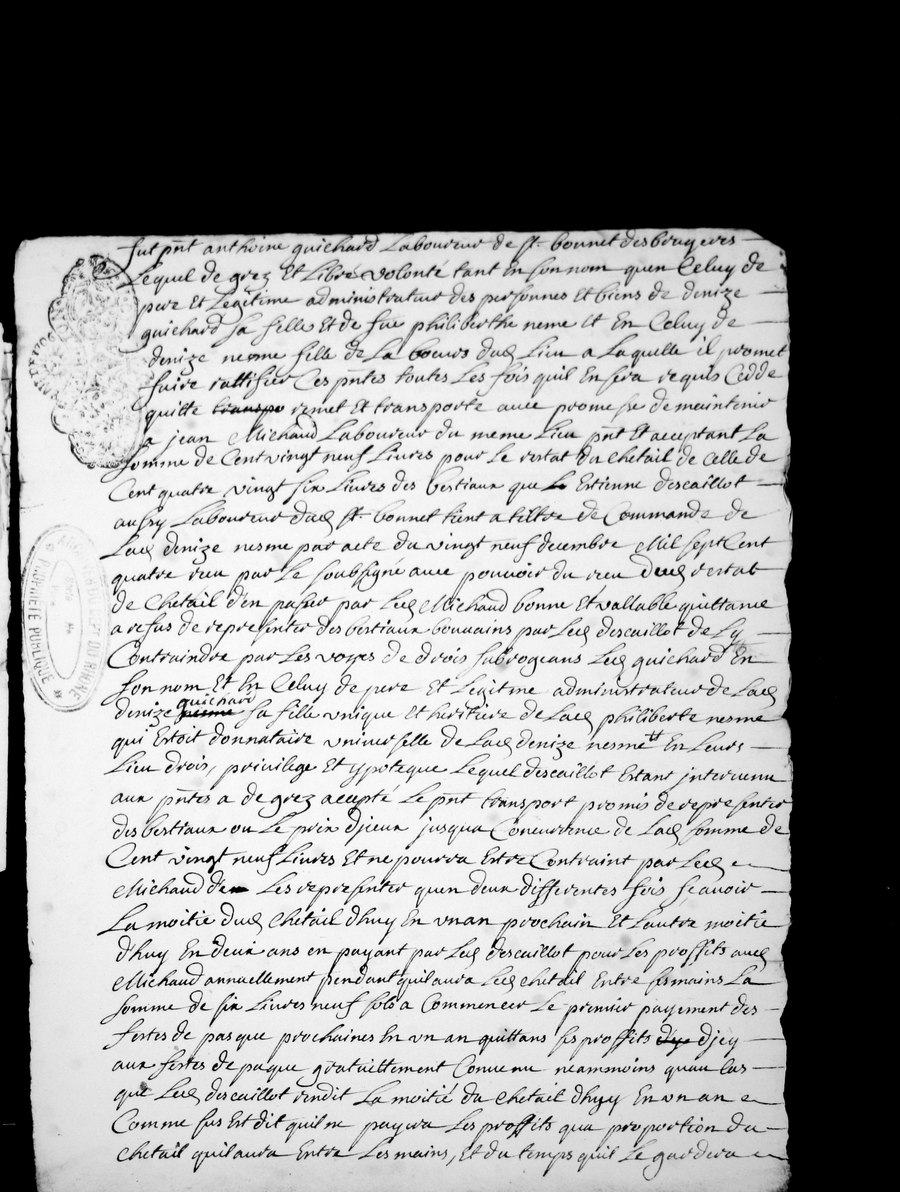 fut pñt anthoine guichard Laboureur de st. bonnet des brugeres
Lequel de grez Et Libre volonté tant En son nom quen Celuy de
pere Et Legitime administrateur des personnes Et biens de denize
guichard sa fille Et de fue philiberthe neme Et En Celuy de
denize nesme fille de La dud Lieu a Laquelle il promet
faire rattifier Ces pñtes toutes Les fois quil En sera requis Cedde
quitte transpo remet Et transporte avec promesse de maintenir
a jean Michaud Laboureur du meme Lieu pñt Et acceptant La
somme de Cent vingt neuf Livres pour Le restat du Chetail de Celle de
Cent quatre vingt six Livres des bestiaux que Le Estienne descaillot
aussy Laboureur dud st. bonnet tient a tiltre de Commande de
Lad denize nesme par acte du vingt neuf decembre Mil sept Cent
quatre receu par Le soubsigné avec pouvoir du receu dud restat
de Chetail d'en passer par Led Michaud bonne Et vallable quittance
a refus de representer des bestiaux bouvains par Led descaillot de Ly
Contraindre par Les voyes de drois subrogeans Led guichard En
son nom Et En Celuy de pere Et Legitme administrateur de Lad
guichard
denize nesme sa fille unique Et heritiere de Lad philiberte nesme
qui Estoit donnataire universelle de Lad denize nesme Et En Leurs
Lieu drois, privilege Et ypoteque Lequel descaillot Estant intervenu
aux pñtes a de grez accepté Le pñt transport promis de representer
des bestiaux ou Le prix d'jceux jusqua Concurrence de Lad somme de
Cent vingt neuf Livres Et ne pourra Estre Contraint par Led
Michaud de Les representer quen deux differentes fois sçavoir
La moitie dud Chetail dhuy En un an prochain Et Lautre moitie
d'huy En deux ans en payant par Led descaillot pour Les proffits aud
Michaud annuellement pendant quil aura Led Chetail Entre ses mains La
somme de six Livres neuf sols a Commencer Le premier payement des
festes de pasque prochaines En un an quittans ses proffits d'yc d'jcy
aux festes de paque gratuittement Convenu neammoins quau Cas
que Led descaillot rendit La moitié du Chetail d'huy En un an
Comme sus Est dit quil ne payera Les proffits qua proportion du
Chetail quil aura Entre Les mains, Et du temps quil Le gardera
PROPRIÉTÉ PUBLIQUE
DU RHONE